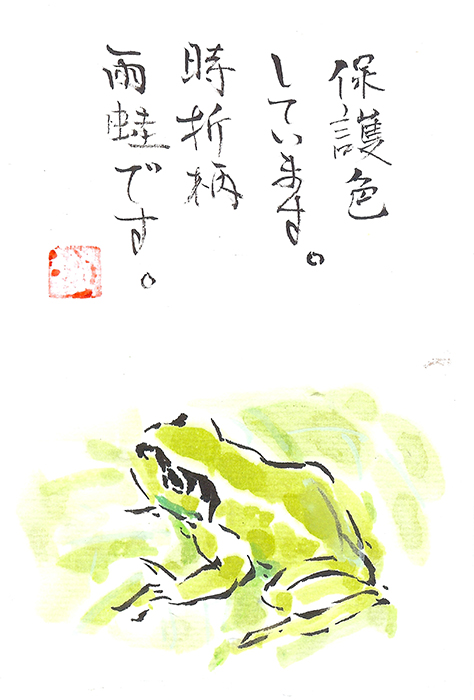 保護色
しています。
時折柄
雨蛙です。